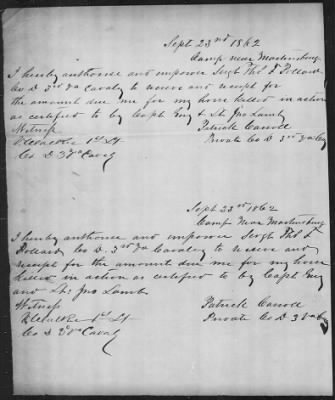 Sept 23rd 1862
Camp near Martinsburg
I hereby authorise and empower Sergt Thos F Pollard
Co D 3rd Va Cavalry to receive and receipt for
the amount due me for my horse killed in action
as certified to by Capt & Lt Jno Lamb
Witness
Patrick Carroll
1st Lt
Private Co D 3rd Va Cav
Co D 3 Va Cavaly
Sept 23rd 1862
Camp Near Martinsburg
I hereby authorise and empower Sergt Thos F
Pollard Co D. 3rd Va Cavalry to receive and
receipt for the amount due me for my horse
killed in action as certified to by Capt
and Lt Jno Lamb
Witness
Patrick Carroll
1st Lt
Private Co D 3 Va Cav
Co D 3rd Va Cavaly